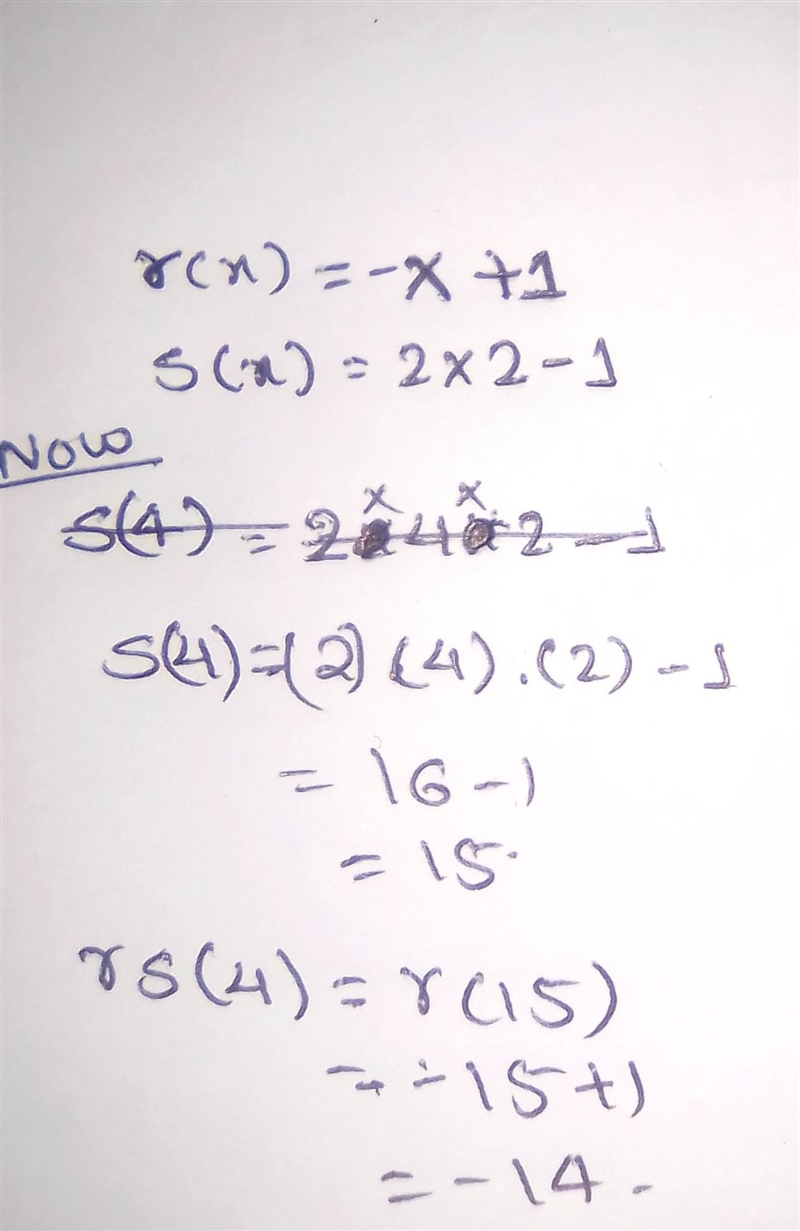 r(x) = -x + 1
s(x) = 2x2 - 1
Now
s(4) = 2x4x2 - 1
s(4) = (2) (4) . (2) - 1
= 16 - 1
= 15.
rs(4) = r(15)
= -15 + 1
= -14.